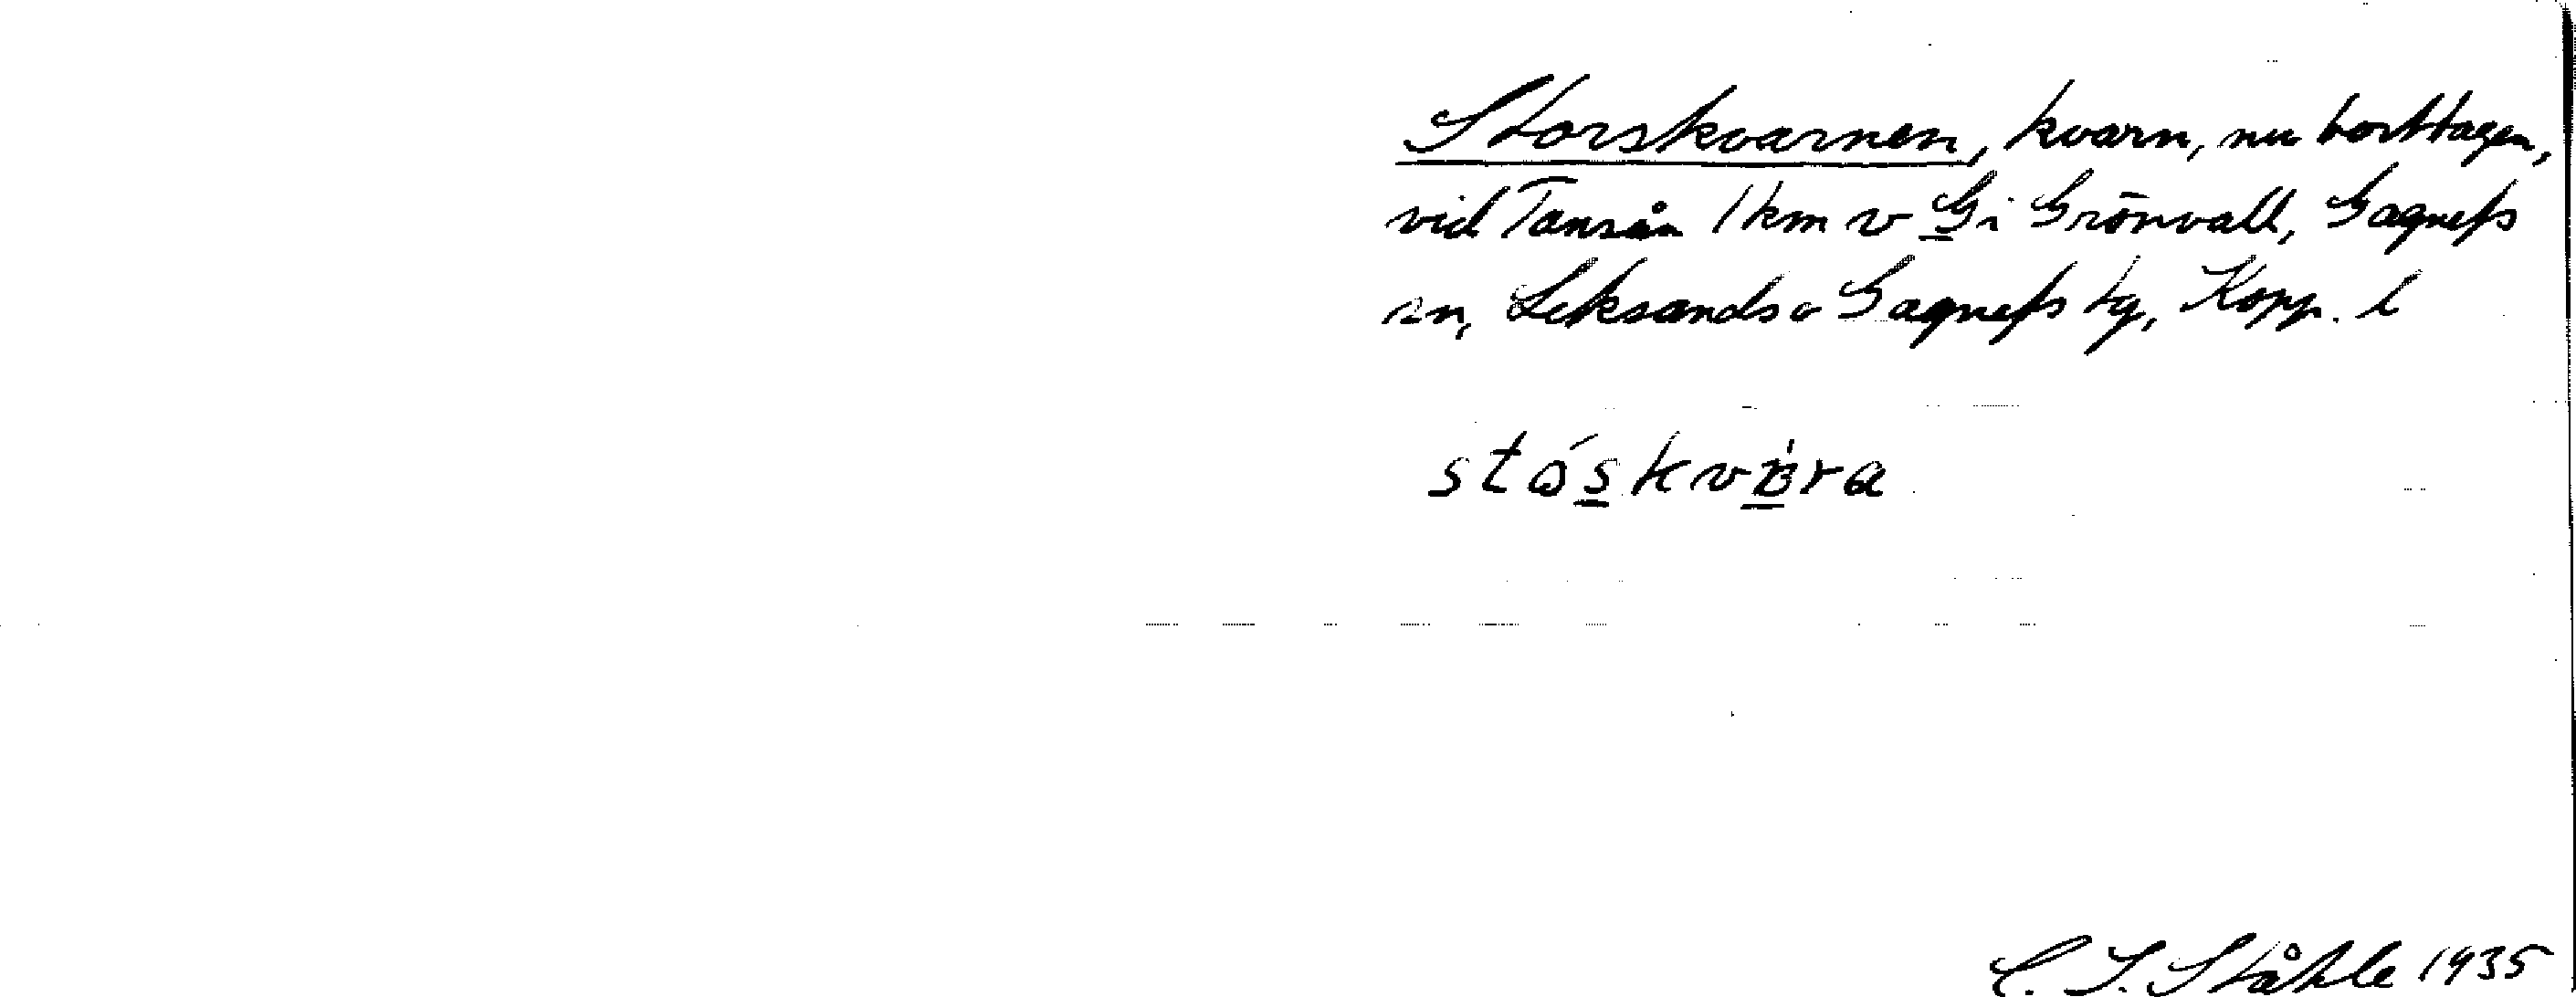 Storskvarnen, kvarn, nu borttagen,
vid Tansån 1 km v G i Grönvall, Gagnefs
sn, Leksands o Gagnefs tg, Kopp. l
C. I. Ståhle 1935